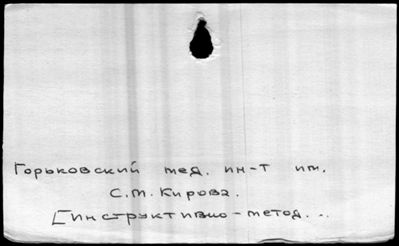 Горьковский мед. ин-т им.
С.М. Кирова.
[Инструктивно-метод...